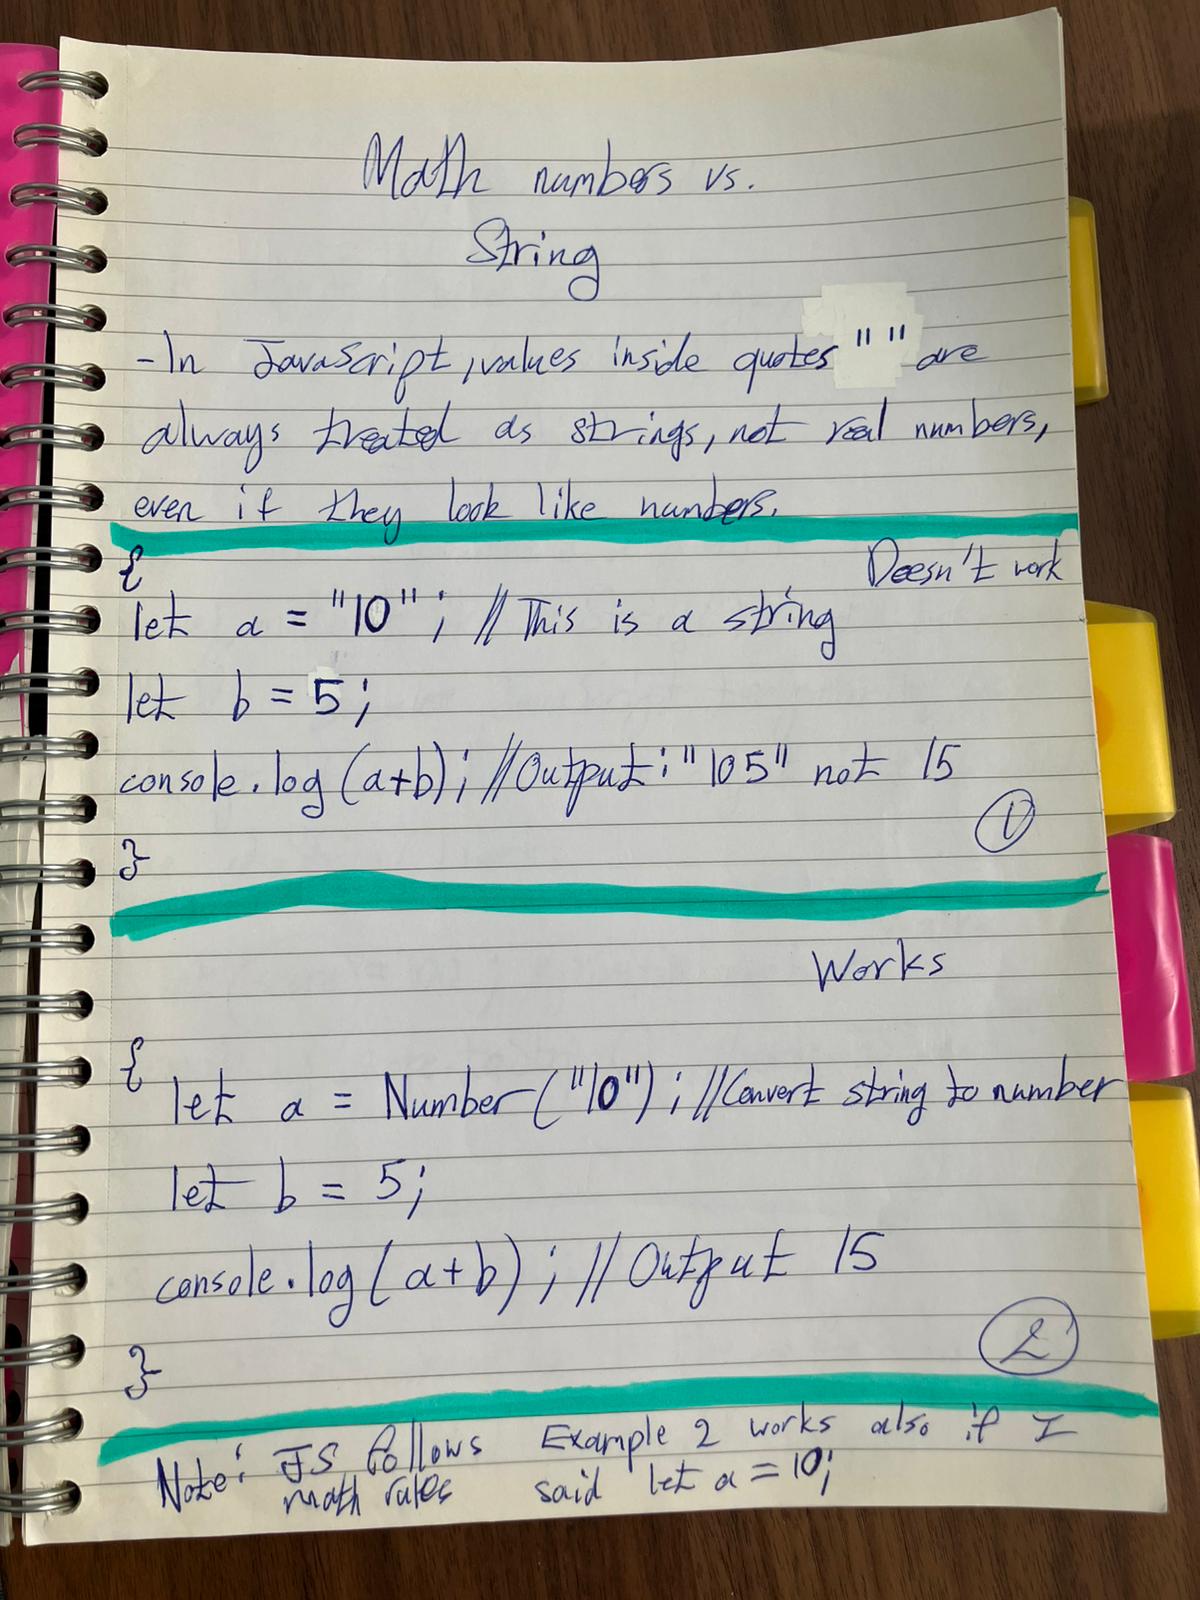 Math numbers vs.
String
-In JavaScript, values inside quotes " " are
always treated as strings, not real numbers,
even if they look like numbers.
Doesn't work
{
let a = "10"; //This is a string
let b = 5;
console.log(a+b); //Output: "105" not 15
1
}
Works
{
let a = Number("10"); //Convert string to number
let b = 5;
console.log(a+b); //Output 15
2
}
Note: JS follows
math rules
Example 2 works also if I
said let a = 10;